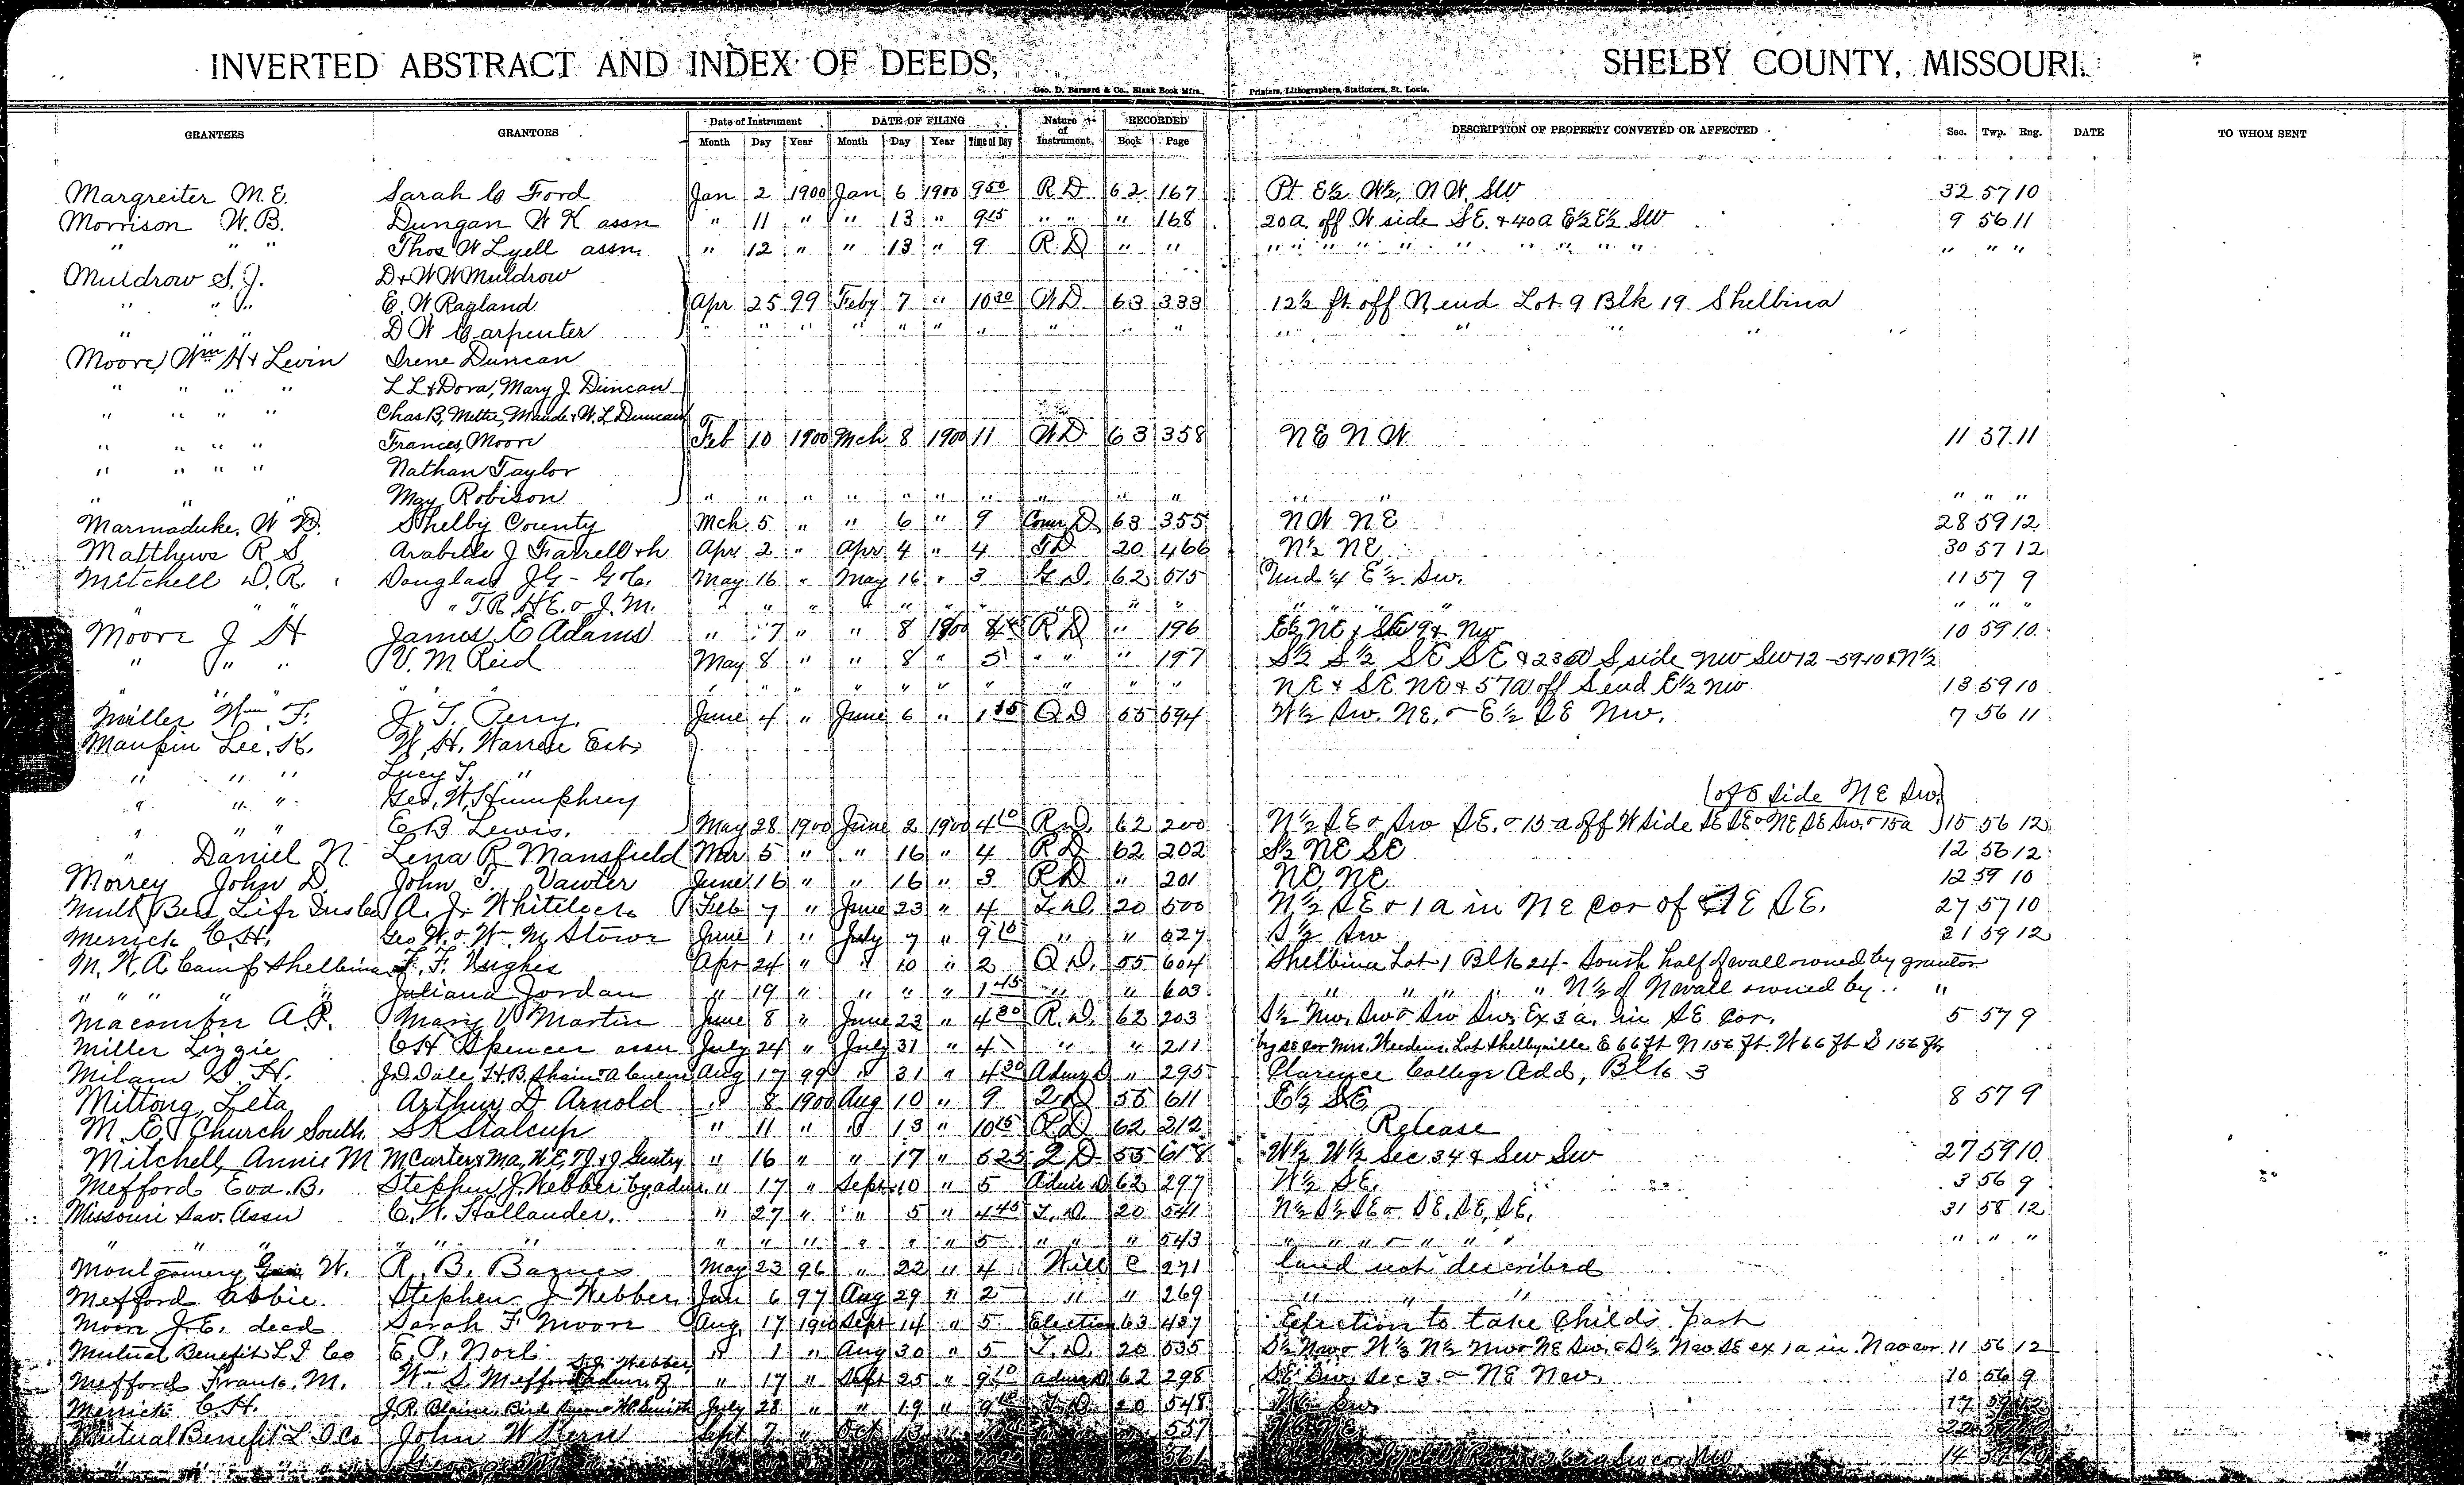 INVERTED ABSTRACT AND INDEX OF DEEDS, SHELBY COUNTY, MISSOURI.
Geo. D. Barnard & Co., Blank Book Mfrs., Printers, Lithographers, Stationers, St. Louis.
GRANTEES GRANTORS Date of Instrument DATE OF FILING Nature of Instrument, RECORDED DESCRIPTION OF PROPERTY CONVEYED OR AFFECTED Sec. Twp. Rng. DATE TO WHOM SENT
Month Day Year Month Day Year Time of Day Book Page
Margreiter M. E. Sarah C Ford Jan 2 1900 Jan 6 1900 9 00 R D 62 167 Pt E½ W½, NW, SW 32 57 10
Morrison W. B. Dungan W K assn " 11 " " 13 " 9 15 " " " 168 20a off W side SE. & 40a E½ E½ SW 9 56 11
" " " Thos W Lyell assn " 12 " " 13 " 9 R. D " " " " " " " " " " " " " "
Muldrow S. J. D & W W Muldrow
" " " E. W Ragland Apr 25 99 Feby 7 " 10 30 W D 63 333 12½ ft off N end Lot 9 Blk 19 Shelbina
" " " D W Carpenter " " " " " " " " " " " " " "
Moore, Wm H & Levin Irene Duncan
" " " " L L & Dora, Mary J Duncan
" " " " Chas B, Mettie, Maude & W. L Duncan
" " " " Frances Moore Feb 10 1900 Mch 8 1900 11 W D 63 358 NE NW 11 57 11
" " " " Nathan Taylor
" " " May Robison " " " " " " " " " " " " " " "
Marmaduke, W D. Shelby County Mch 5 " " 6 " 9 Comr D 63 355 NW NE 28 59 12
Matthews R S Arabelle J Farrell & h Apr 2 " Apr 4 " 4 T D 20 466 N½ NE 30 57 12
Mitchell D. R. Douglass J G - G C. May 16 " May 16 " 3 G. D. 62 575 Und ¼ E½ Sw. 11 57 9
" " " " T. R, H E. & J. M. " " " " " " " " " " " " " " " " "
Moore J H James E Adams " 7 " " 8 1900 8 45 R D " 196 E½ NE & SE 9 & NW 10 59 10
" " " V. M Reid May 8 " " 8 " 5 " " " 197 S½ S½ SE SE & 23a S side NW SW 12-59-10 & N½
" " " " " " " " " " " NE & SE NE & 57a off S end E½ NW 13 59 10
Miller Wm F. J. T. Perry. June 4 " June 6 " 1 15 Q D 55 594 W½ Sw. NE. & E½ SE Nw. 7 56 11
Maupin Lee, K. W. H. Warren Est
" " " Lucy T. "
" " " Geo. W. Humphrey (of E side NE Sw.)
" " " E B Lewis. May 28 1900 June 2 1900 4 10 R. D. 62 200 N½ SE & Sw SE. & 15a off W side SE SE & NE SE Sw. & 15a 15 56 12
" Daniel N. Lena R Mansfield Mar 5 " " 16 " 4 R D 62 202 S½ NE SE 12 56 12
Morrey John D. John T. Vawter June 16 " " 16 " 3 R D " 201 NE, NE 12 59 10
Mutl Ben Life Ins Co A. J. Whitelock Feb 7 " June 23 " 4 T. D. 20 500 N½ SE & 1a in NE cor of SE SE. 27 57 10
Merrick C. H. Geo W. & Wm M. Stowe June 1 " July 7 " 9 10 " " 527 S½ Sw 21 59 12
M. W. A. Camp Shelbina F. F. Hughes Apr 24 " " 10 " 2 Q. D. 55 604 Shelbina Lot 1 Blk 24 - South half of wall owned by grantor
" " " " " Juliana Jordan " 19 " " " " 1 45 " " 603 " " " " N½ of N wall owned by " "
Macomber A. R. Mary V Martin June 8 " June 23 " 4 30 R. D. 62 203 S½ Nw. Sw & Sw Sw. Ex 3a. in SE Cor. 5 57 9
Miller Lizzie C H Spencer assn July 24 " July 31 " 4 " " 211 Cor Mrs. Lot Shelbyville E 66 ft N 156 ft. W 66 ft S 156 ft
Milam S H. J D Dale Aug 17 99 " 31 " 4 30 Admr D " 295 Clarence College Add, Blk 3
Mittong Leta Arthur D Arnold " 8 1900 Aug 10 " 9 Q D 55 611 E½ SE 8 57 9
M. E. Church South S K Stalcup " 11 " " 13 " 10 15 R D 62 212 Release
Mitchell, Annie M M Carter & Ma, W. E, T J & J Gentry " 16 " " 17 " 5 25 Q D 55 618 W½ W½ Sec 34 & Sw Sw 27 59 10
Mefford Eva. B. Stephen J. Webber by admr. " 17 " Sept 10 " 5 Admr D 62 297 W½ SE. 3 56 9
Missouri Sav. Assn C. W. Hollander. " 27 " " 5 " 4 45 T. D. 20 541 N½ S½ SE & SE, SE, SE. 31 58 12
" " " " " " " " " " " " 5 " " " 543 " " " " " " " " " "
Montgomery W. R. B. Barnes May 23 96 " 22 " 4 Will C 271 land not described
Mefford Abbie. Stephen J Webber Jan 6 97 Aug 29 " 2 " " 269 " " "
Moore J. E. decd Sarah F Moore Aug. 17 1900 Sept 14 " 5 Election 63 437 Election to take Childs part
Mutual Benefit L I Co E. P. Noel " 1 " Aug 30 " 5 T. D. 20 535 S½ Nw & W½ N½ Nw & NE Sw. & S½ Nw. SE ex 1a in. Nw cor 11 56 12
Mefford Frank. M. Wm S. Mefford admr of S. J. Webber " 17 " Sept 25 " 9 10 Admr D 62 298 SE Sw. Sec 3 & NE Nw. 10 56 9
Merrick C. H. J. R. Blaine July 28 " " 19 " T. D. 20 548 Sw 17
Mutual Benefit L I Co John W Stern Sept 7 " Oct 557
" " 561 14